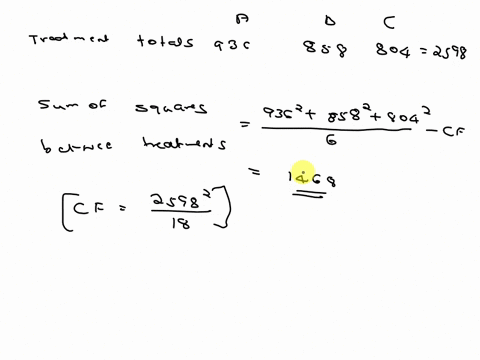 A B C
Treatment totals 936 858 804 = 2598
Sum of squares between treatments = (936² + 858² + 804²) / 6 - CF
= 1468
[CF = 2598² / 18]